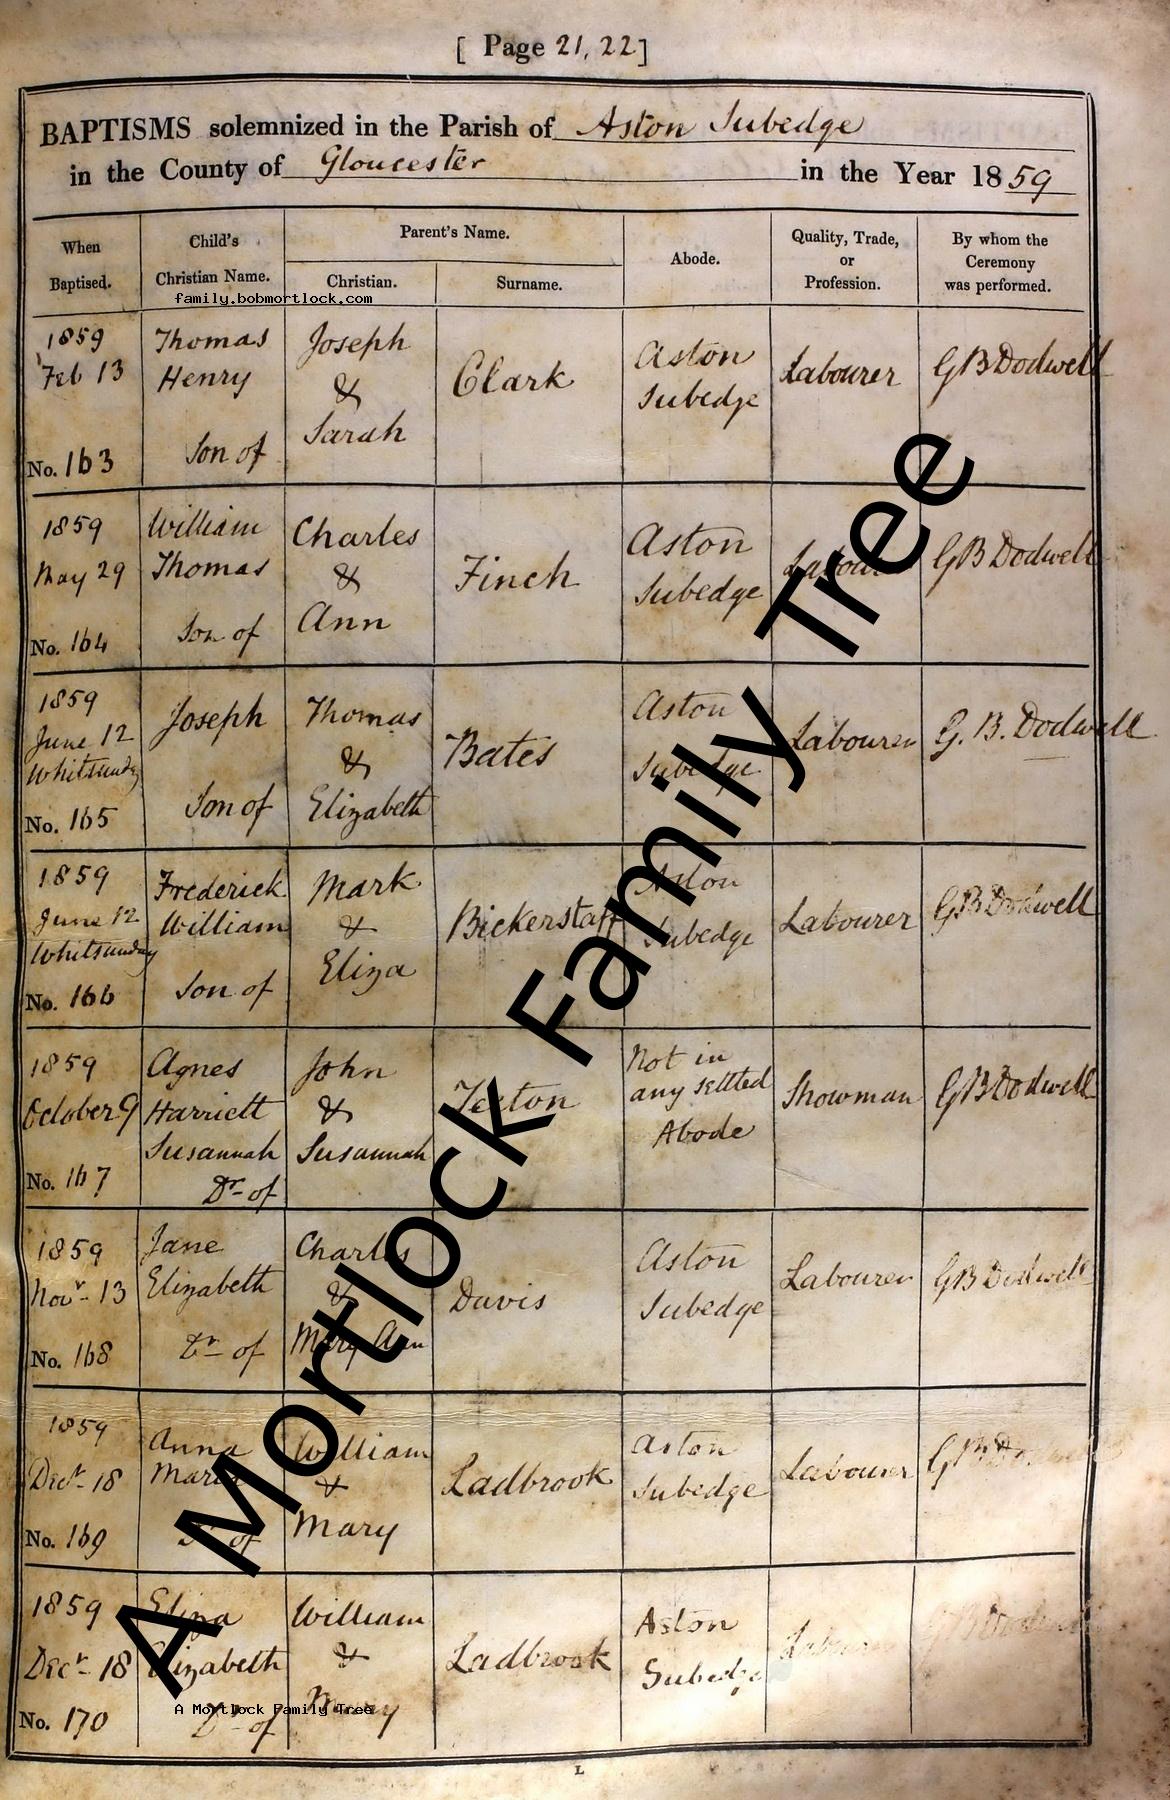 [ Page 21, 22 ]
BAPTISMS solemnized in the Parish of Aston Subedge
in the County of Gloucester in the Year 1859
When Baptised.
Child's Christian Name.
Parent's Name.
Christian.
Surname.
Abode.
Quality, Trade, or Profession.
By whom the Ceremony was performed.
family.bobmortlock.com
1859
Feb 13
No. 163
Thomas
Henry
Son of
Joseph
&
Sarah
Clark
Aston
Subedge
Labourer
GB Dodwell
1859
May 29
No. 164
William
Thomas
Son of
Charles
&
Ann
Finch
Aston
Subedge
Labourer
GB Dodwell
1859
June 12
Whitsunday
No. 165
Joseph
Son of
Thomas
&
Elizabeth
Bates
Aston
Subedge
Labourer
G. B. Dodwell
1859
June 12
Whitsunday
No. 166
Frederick
William
Son of
Mark
&
Eliza
Bickerstaff
Aston
Subedge
Labourer
GB Dodwell
1859
October 9
No. 167
Agnes
Harriett
Susannah
Dr of
John
&
Susannah
Not in
any settled
Abode
Showman
GB Dodwell
1859
Novr 13
No. 168
Jane
Elizabeth
Dr of
Charles
&
Mary Ann
Davis
Aston
Subedge
Labourer
GB Dodwell
1859
Decr 18
No. 169
Anna
Maria
Dr of
William
&
Mary
Ladbrook
Aston
Subedge
Labourer
GB Dodwell
1859
Decr 18
No. 170
Eliza
Elizabeth
Dr of
William
&
Mary
Ladbrook
Aston
Subedge
Labourer
GB Dodwell
A Mortlock Family Tree
A Mortlock Family Tree
L